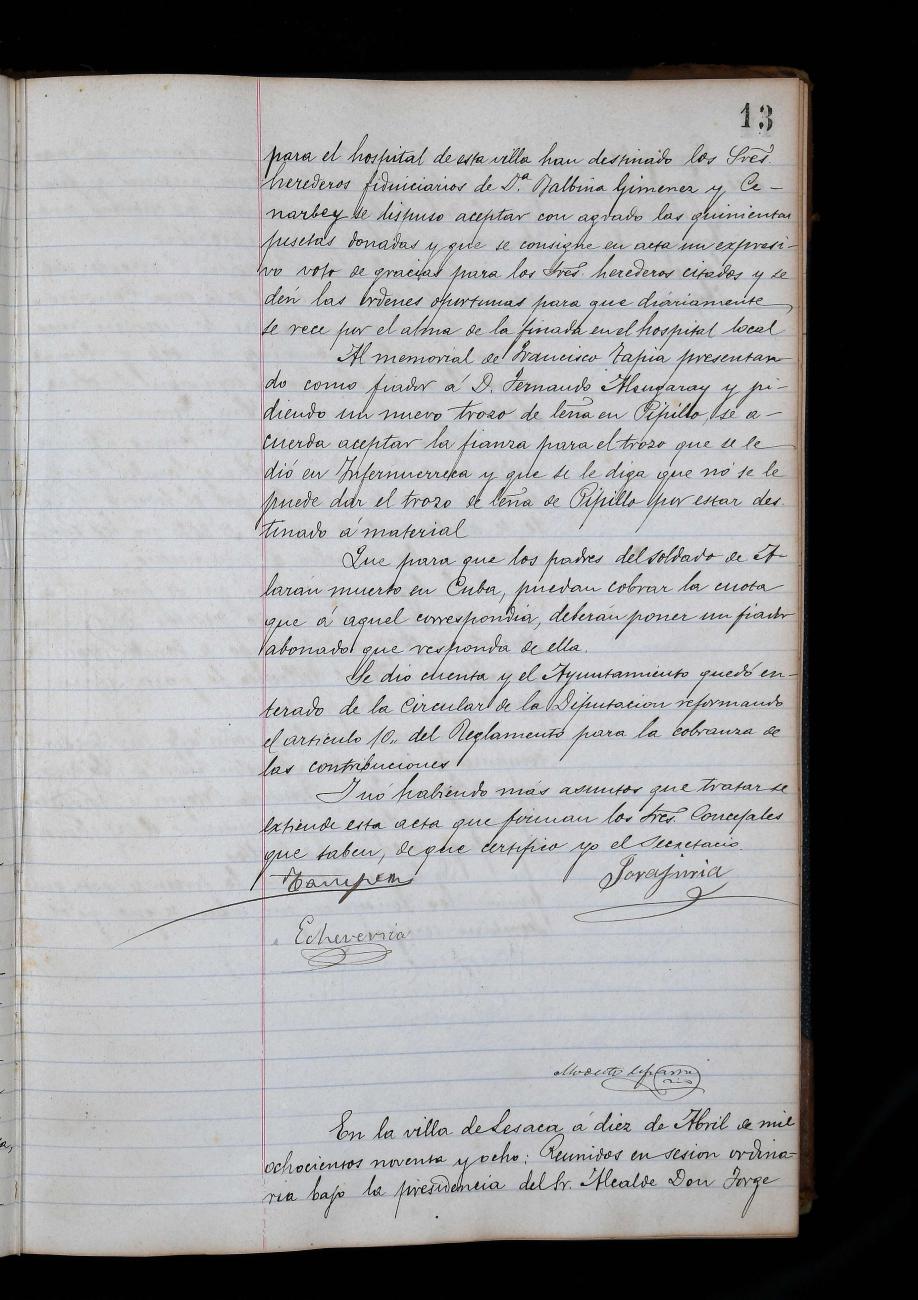 13
para el hospital de esta villa han destinado los Sres.
herederos fiduciarios de D.ª Balbina Gimenez y Ce-
narbey se dispuso aceptar con agrado las quinientas
pesetas donadas y que se consigne en acta un expresi-
vo voto de gracias para los Sres. herederos citados y se
den las órdenes oportunas para que diáriamente
se rece por el alma de la finada en el hospital local
Al memorial de Francisco Tapia presentan-
do como fiador á D. Fernando Alzugaray y pi-
diendo un nuevo trozo de leña en Pipillo, se a-
cuerda aceptar la fianza para el trozo que se le
dió en Infernuerreca y que se le diga que nó se le
puede dar el trozo de leña de Pipillo por estar des
tinado á material
Que para que los padres del soldado de A-
larán muerto en Cuba, puedan cobrar la cuota
que á aquel correspondia, deberán poner un fiador
abonado que responda de ella.
Se dio cuenta y el Ayuntamiento quedó en-
terado de la Circular de la Diputacion reformando
el articulo 10,, del Reglamento para la cobranza de
las contribuciones
I nó habiendo más asuntos que tratar se
extiende esta acta que firman los Sres. Concejales
que saben, de que certifico yo el Secretacio.
Jorajuria
Echeverria
Modesto
En la villa de Lesaca á diez de Abril de mil
ochocientos noventa y ocho: Reunidos en sesion ordina-
ria bajo la presidencia del Sr. Alcalde Don Jorge